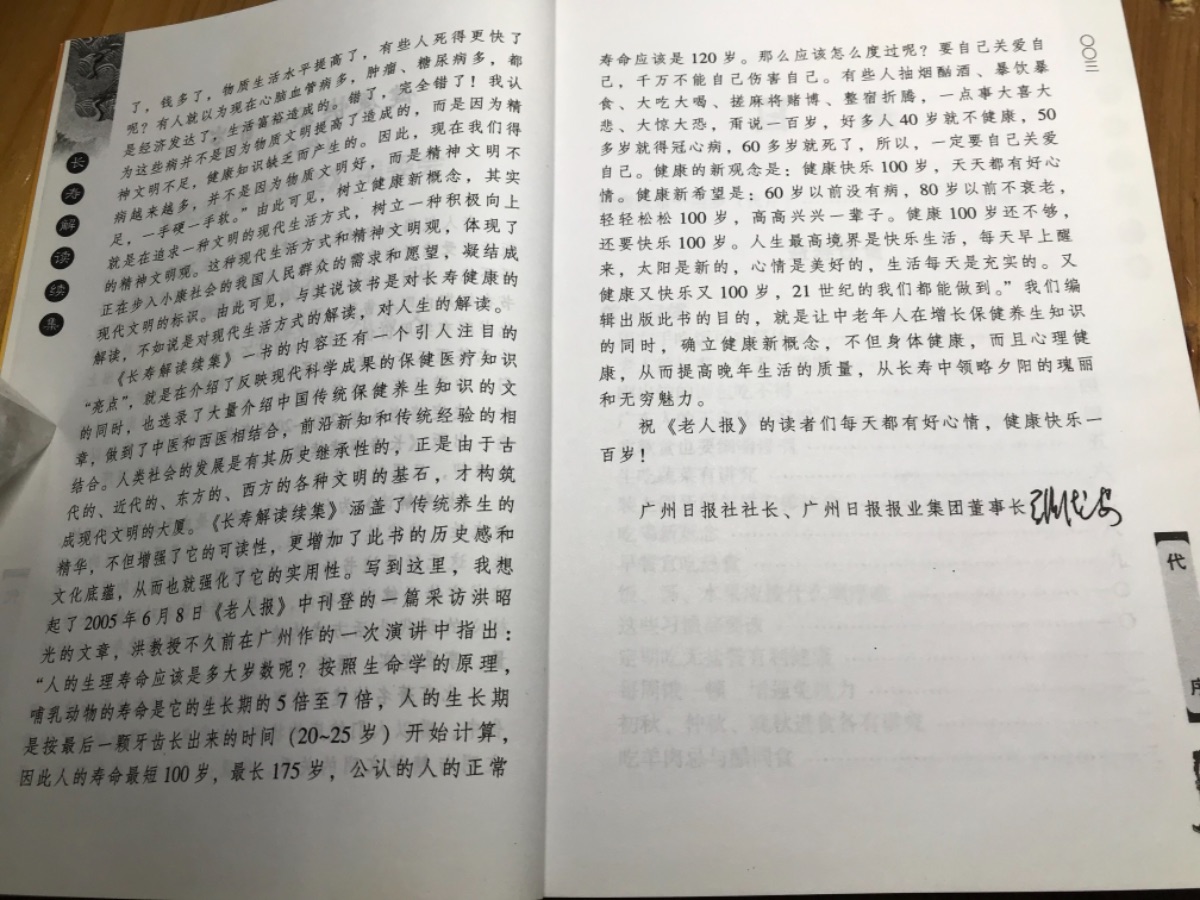 长
寿
解
读
续
集
了，钱多了，物质生活水平提高了，有些人死得更快了
呢？有人就以为现在心脑血管病多，肿瘤、糖尿病多，都
是经济发达了，生活富裕造成的。错了，完全错了！我认
为这些病并不是因为物质文明提高了造成的，而是因为精
神文明不足，健康知识缺乏而产生的。因此，现在我们得
病越来越多，并不是因为物质文明好，而是精神文明不
足，一手硬一手软。”由此可见，树立健康新概念，其实
就是在追求一种文明的现代生活方式，树立一种积极向上
的精神文明观。这种现代生活方式和精神文明观，体现了
正在步入小康社会的我国人民群众的需求和愿望，凝结成
现代文明的标识。由此可见，与其说该书是对长寿健康的
解读，不如说是对现代生活方式的解读，对人生的解读。
《长寿解读续集》一书的内容还有一个引人注目的
“亮点”，就是在介绍了反映现代科学成果的保健医疗知识
的同时，也选录了大量介绍中国传统保健养生知识的文
章，做到了中医和西医相结合，前沿新知和传统经验的相
结合。人类社会的发展是有其历史继承性的，正是由于古
代的、近代的、东方的、西方的各种文明的基石，才构筑
成现代文明的大厦。《长寿解读续集》涵盖了传统养生的
精华，不但增强了它的可读性，更增加了此书的历史感和
文化底蕴，从而也就强化了它的实用性。写到这里，我想
起了2005年6月8日《老人报》中刊登的一篇采访洪昭
光的文章，洪教授不久前在广州作的一次演讲中指出：
“人的生理寿命应该是多大岁数呢？按照生命学的原理，
哺乳动物的寿命是它的生长期的5倍至7倍，人的生长期
是按最后一颗牙齿长出来的时间（20~25岁）开始计算，
因此人的寿命最短100岁，最长175岁，公认的人的正常
寿命应该是120岁。那么应该怎么度过呢？要自己关爱自
己，千万不能自己伤害自己。有些人抽烟酗酒、暴饮暴
食、大吃大喝、搓麻将赌博、整宿折腾，一点事大喜大
悲、大惊大恐，甭说一百岁，好多人40岁就不健康，50
多岁就得冠心病，60多岁就死了，所以，一定要自己关爱
自己。健康的新观念是：健康快乐100岁，天天都有好心
情。健康新希望是：60岁以前没有病，80岁以前不衰老，
轻轻松松100岁，高高兴兴一辈子。健康100岁还不够，
还要快乐100岁。人生最高境界是快乐生活，每天早上醒
来，太阳是新的，心情是美好的，生活每天是充实的。又
健康又快乐又100岁，21世纪的我们都能做到。”我们编
辑出版此书的目的，就是让中老年人在增长保健养生知识
的同时，确立健康新概念，不但身体健康，而且心理健
康，从而提高晚年生活的质量，从长寿中领略夕阳的瑰丽
和无穷魅力。
祝《老人报》的读者们每天都有好心情，健康快乐一
百岁！
广州日报社社长、广州日报报业集团董事长
〇〇三
代
序